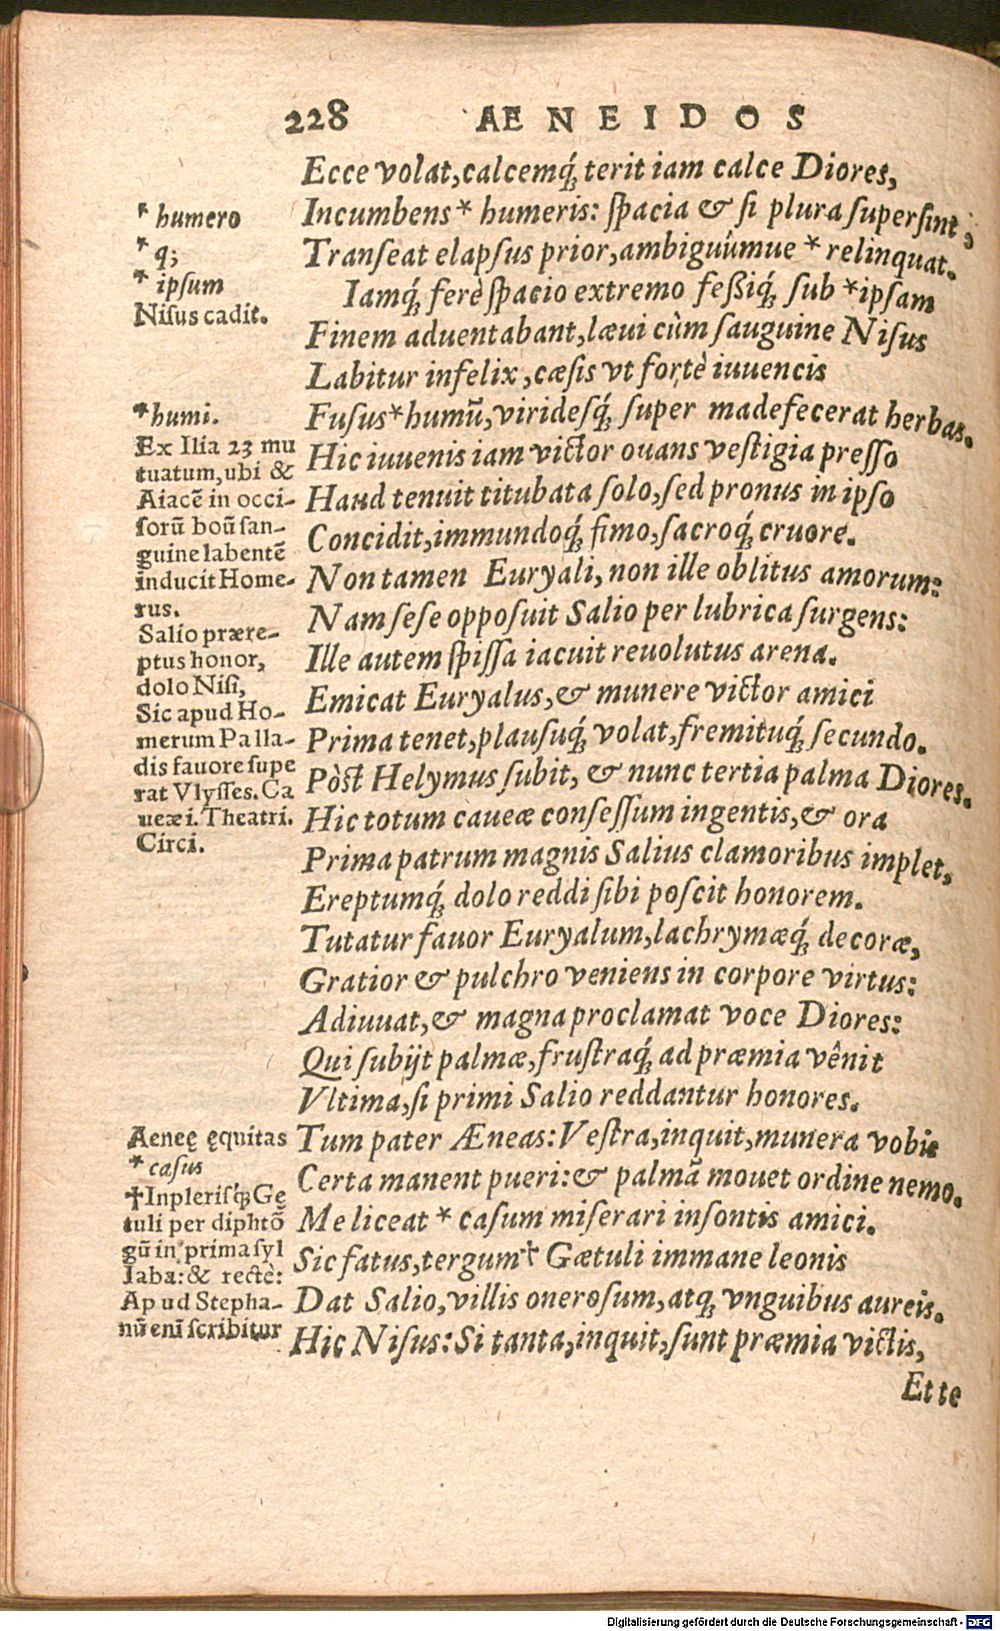 228 AENEIDOS
Ecce volat, calcemq́; terit iam calce Diores,
Incumbens* humeris: ſpacia & ſi plura ſuperſint,
Tranſeat elapſus prior, ambiguúmue * relinquat.
Iamq́; ferè ſpacio extremo feßiq́; ſub *ipſam
Finem aduentabant, læui cùm ſauguine Niſus
Labitur infelix, cæſis vt fortè iuuencis
Fuſus*humū, viridesq́; ſuper madefecerat herbas.
Hic iuuenis iam victor ouans veſtigia preſſo
Haud tenuit titubata ſolo, ſed pronus in ipſo
Concidit, immundoq́; fimo, ſacroq́; cruore.
Non tamen Euryali, non ille oblitus amorum:
Nam ſeſe oppoſuit Salio per lubrica ſurgens:
Ille autem ſpiſſa iacuit reuolutus arena.
Emicat Euryalus, & munere victor amici
Prima tenet, plauſuq́; volat, fremituq́; ſecundo.
Pòſt Helymus ſubit, & nunc tertia palma Diores.
Hic totum caueæ conſeſſum ingentis, & ora
Prima patrum magnis Salius clamoribus implet,
Ereptumq́; dolo reddi ſibi poſcit honorem.
Tutatur fauor Euryalum, lachrymæq́; decoræ,
Gratior & pulchro veniens in corpore virtus:
Adiuuat, & magna proclamat voce Diores:
Qui ſubijt palmæ, fruſtraq́; ad præmia vênit
Vltima, ſi primi Salio reddantur honores.
Tum pater Æneas: Veſtra, inquit, munera vobis
Certa manent pueri: & palmā mouet ordine nemo.
Me liceat * caſum miſerari inſontis amici.
Sic fatus, tergum† Gætuli immane leonis
Dat Salio, villis oneroſum, atq; vnguibus aureis.
Hic Niſus: Si tanta, inquit, ſunt præmia victis,
Et te
* humero
* q;
* ipſum
Niſus cadit.
*humi.
Ex Ilia 23 mu
tuatum, ubi &
Aiacē in occi-
ſorū boū ſan-
guine labentē
inducit Home-
rus.
Salio prære-
ptus honor,
dolo Niſi,
Sic apud Ho-
merum Palla-
dis fauore ſupe
rat Vlyſſes. Ca
ueæ i. Theatri.
Circi.
Aeneę ęquitas
* caſus
†In pleriſq́; Gę
tuli per diphtō
gū in prima ſyl
laba: & rectè:
Apud Stepha-
nū enī ſcribitur
Digitalisierung gefördert durch die Deutsche Forschungsgemeinschaft - DFG